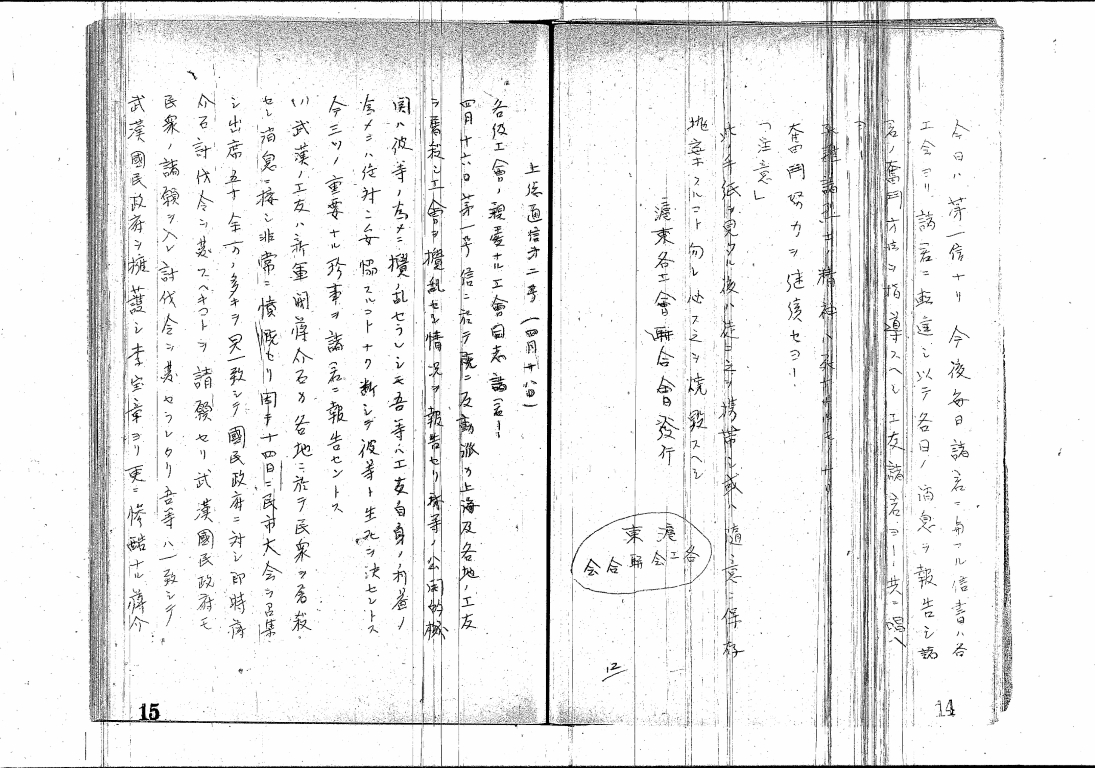 今日ハ第一信ナリ 今後毎日諸君ニ与フル信書ハ各
工会ヨリ諸君ニ転達シ以テ各日ノ消息ヲ報告シ諸
君ノ奮鬥方法ヲ指導スヘシ工友諸君ヨー共ニ唱ヘ
ヨー
諸烈士ノ精神ハ死セサルモノナリ
奮鬥努力ヲ継續セヨー
「注意」
此ノ手紙ヲ見タル後ハ徒ニ之ヲ携帯シ或ハ随意ニ保存
地棄スルコト勿レ必ス之ヲ焼毀スヘシ
滬東各工會聯合會發行
滬東
各工会聯合会
12
14
上總通信才二号(四月廿八日)
各級工會ノ親愛ナル工會同志諸君ー
四月十六日第一号信ニ於テ既ニ反動派カ上海及各地ノ工友
ヲ屠殺シ工會ヲ攪乱セル情况ヲ報告セリ我等ノ公開的機
関ハ彼等ノ為メニ攪乱セラレシモ吾等ハ工友自身ノ利益ノ
為メニハ絶対ニ妥協スルコトナク断シテ彼等ト生死ヲ決セントス
今三ツノ重要ナル珍事ヲ諸君ニ報告セントス
(1)武漢ノ工友ハ新軍閥蒋介石カ各地ニ於テ民衆ヲ屠殺
セシ消息ニ接シ非常ニ憤慨セリ因テ十四日ニ民市大会ヲ召集
シ出席五十余万ノ多キヲ見一致シテ國民政府ニ対シ即時蒋
介石討伐令ヲ発スヘキコトヲ請願セリ武漢國民政府モ
民衆ノ請願ヲ入レ討伐令ヲ発セラレタリ吾等ハ一致シテ
武漢國民政府ヲ擁護シ李宝章ヨリ更ニ惨酷ナル蒋介
15